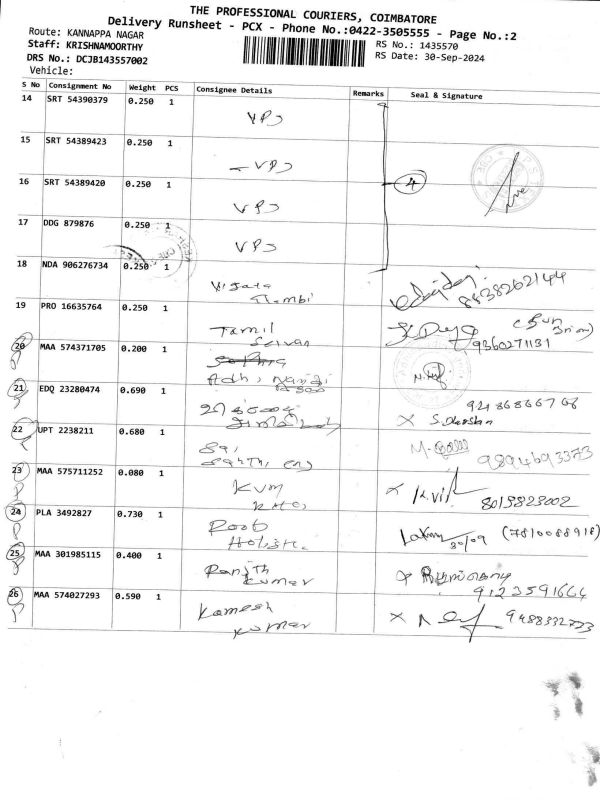 THE PROFESSIONAL COURIERS, COIMBATORE
Delivery Runsheet - PCX - Phone No.:0422-3505555 - Page No.:2
Route: KANNAPPA NAGAR
RS No.: 1435570
Staff: KRISHNAMOORTHY
RS Date: 30-Sep-2024
DRS No.: DCJB143557002
Vehicle:
S No Consignment No Weight PCS Consignee Details Remarks Seal & Signature
14 SRT 54390379 0.250 1
VPJ
15 SRT 54389423 0.250 1
VPJ
16 SRT 54389420 0.250 1 4
VPJ
17 DDG 879876 0.250 1
VPJ
18 NDA 906276734 0.250 1
Thambi 8838262144
19 PRO 16635764 0.250 1
Tamil
Selvan 9360271131
20 MAA 574371705 0.200 1
21 EDQ 23280474 0.690 1
X S.Dharshan
22 UPT 2238211 0.680 1
9894693373
23 MAA 575711252 0.080 1
KVM X
8015823002
24 PLA 3492827 0.730 1
Roob 30/09 (7810088918)
25 MAA 301985115 0.400 1
Ranjith
Kumar 9123591664
26 MAA 574027293 0.590 1
Kamesh X 9488332733
Kumar